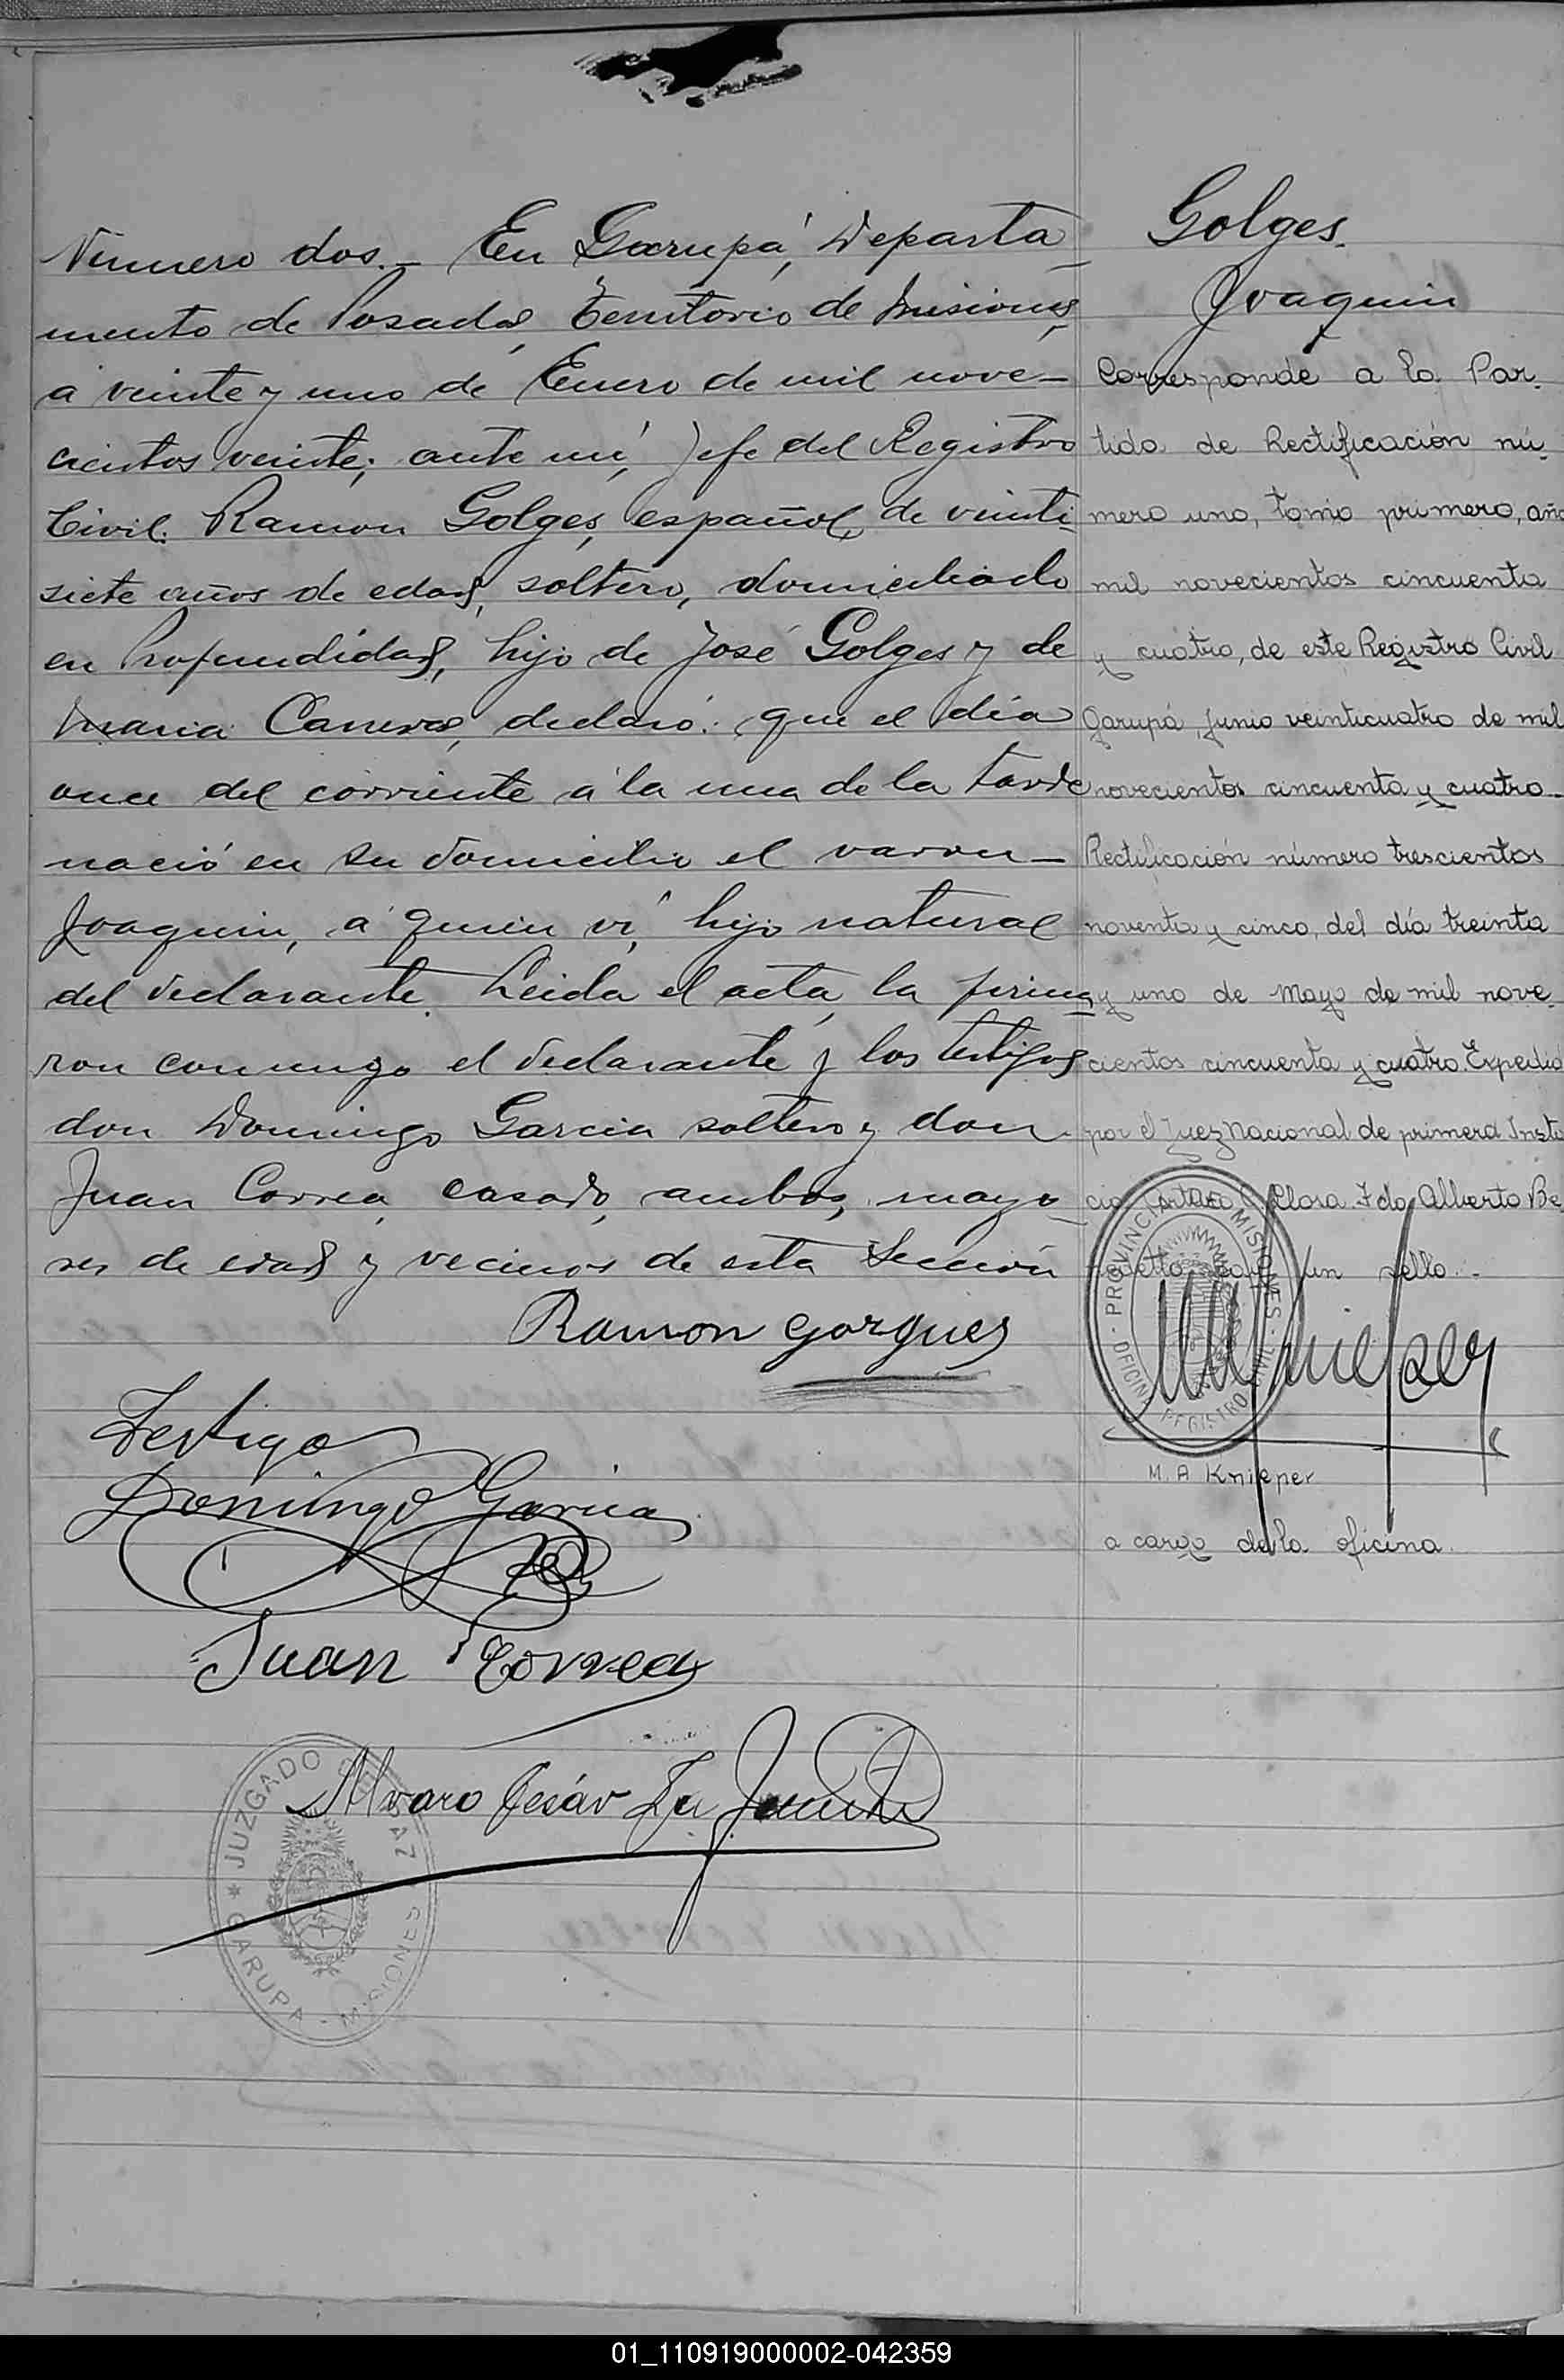 Número dos._ En Garupá, Departa_
mento de Posadas, Territorio de Misiones,
á veinte y uno de Enero de mil nove_
cientos veinte; ante mí, Jefe del Registro
Civil. Ramon Golges, español, de veinti_
siete años de edad, soltero, domiciliado
en Profundidad, hijo de José Golges y de
Maria, declaró: que el día
once del corriente á la una de la tarde
nació en su domicilio el varon_
Joaquin, á quien ví, hijo natural
del declarante. Leida el acta, la firma_
ron conmigo el declarante y los testigos
don Domingo Garcia soltero y don
Juan Correa, casado, ambos, mayo_
res de edad y vecinos de esta Sección
Ramon gorgues
Testigo
Domingo Garcia
Juan Correa
Alvaro César La
JUZGADO DE PAZ
* GARUPA - MISIONES
Golges.
Joaquin
Corresponde a la Par_
tida de Rectificación nú_
mero uno, tomo primero, año
mil novecientos cincuenta
y cuatro, de este Registro Civil
Garupá, Junio veinticuatro de mil
novecientos cincuenta y cuatro._
Rectificación número trescientos
noventa y cinco, del día treinta
y uno de Mayo de mil nove_
cientos cincuenta y cuatro. Expedida
por el Juez Nacional de primera Insta
cia Arturo Fdo Alberto Be
hay un sello.-
PROVINCIA DE MISIONES
OFICINA REGISTRO CIVIL
M. A Knieper
a cargo de la oficina.
01_110919000002-042359